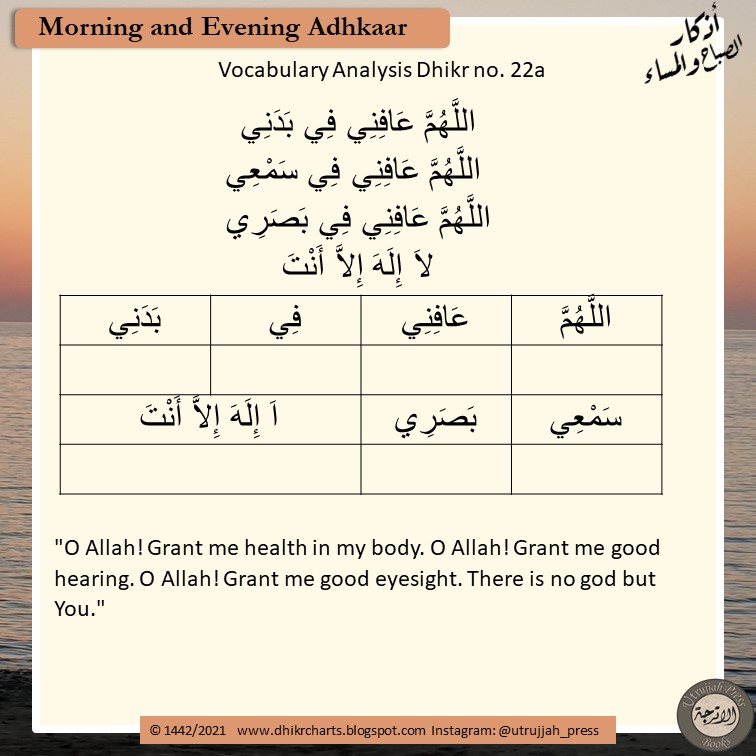 Morning and Evening Adhkaar
أذكار
الصباح والمساء
Vocabulary Analysis Dhikr no. 22a
اللَّهُمَّ عَافِنِي فِي بَدَنِي
اللَّهُمَّ عَافِنِي فِي سَمْعِي
اللَّهُمَّ عَافِنِي فِي بَصَرِي
لاَ إِلَهَ إِلاَّ أَنْتَ
اللَّهُمَّ عَافِنِي فِي بَدَنِي
سَمْعِي بَصَرِي اَ إِلَهَ إِلاَّ أَنْتَ
"O Allah! Grant me health in my body. O Allah! Grant me good
hearing. O Allah! Grant me good eyesight. There is no god but
You."
© 1442/2021 www.dhikrcharts.blogspot.com Instagram: @utrujjah_press
Utrujjah Press
الاترجة
Books